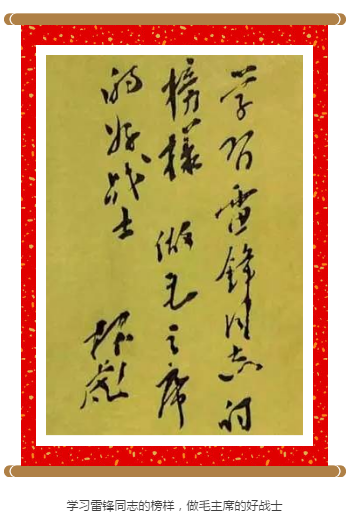 学习雷鋒同志的
榜樣 做毛主席
的好战士
林彪
学习雷锋同志的榜样，做毛主席的好战士